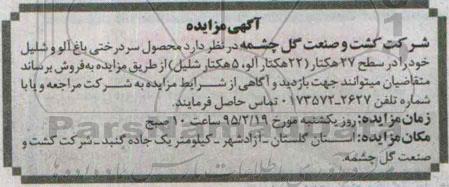 آگهی مزایده
شرکت کشت و صنعت گل چشمه در نظر دارد محصول سردرختی باغ آلو و شلیل
خود را در سطح ۲۷ هکتار (۲۲ هکتار آلو، ۵ هکتار شلیل) از طریق مزایده به فروش برساند
متقاضیان میتوانند جهت بازدید و آگاهی از شرایط مزایده به شرکت مراجعه و یا با
شماره تلفن ۲۶۲۷-۰۱۷۳۵۷۲ تماس حاصل فرمایند.
زمان مزایده: روز یکشنبه مورخ ۹۵/۲/۱۹ ساعت ۱۰ صبح
مکان مزایده: استان گلستان - آزادشهر - کیلومتر یک جاده گنبد - شرکت کشت و
صنعت گل چشمه.